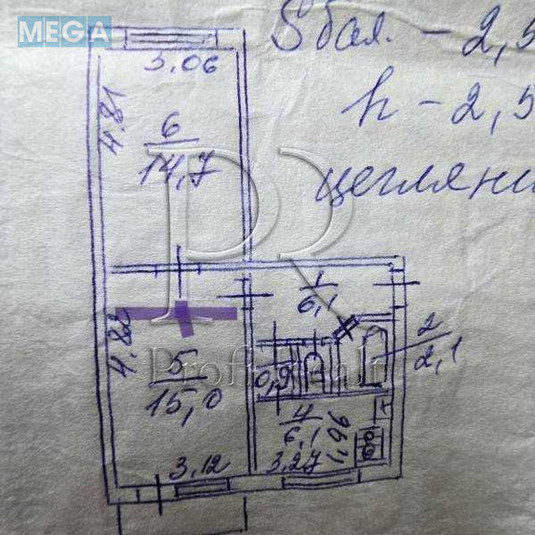 MEGA
Sбал. - 2,5
h - 2,5
цегляни
3,06
4.81
6
14,7
1
6,1
2
2,1
4.82
5
15,0
0,9
4
6,1
1,96
3,12
3.27